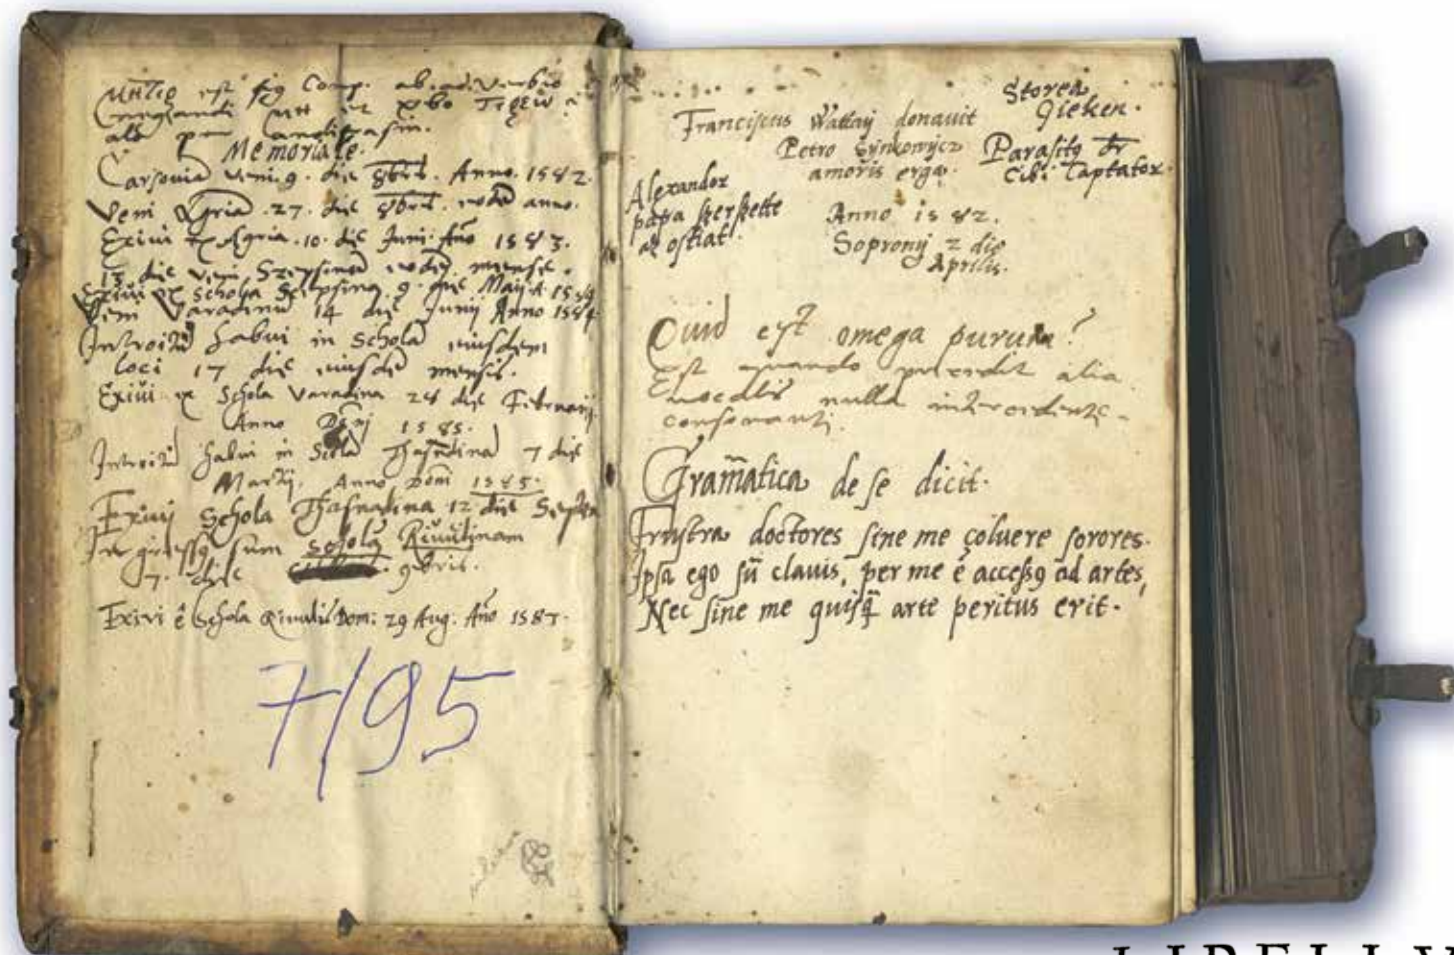 est sig Comp. ab
Memoriale.
Carsovia veni. 9. die 8bris. Anno. 1582.
Veni Agria .27. die 8bris. eodē anno.
Exivi ex Agria .10. die Junii Año 1583.
13 die veni Szepsinū eodē mense.
Exivi ex schola Scepsina 9. die Maij A. 1584
Veni Varadinū 14 die Junij Anno 1584
Introitū habui in Schola eiusdem
loci 17 die eiusdē mensis.
Exivi ex Schola Varadina 28 die Februarij
Anno Dñj 1585.
Introitū habui in Scola Thasnadina 7 die
Martij. Anno Domi 1585.
Exivij Schola Thasnadina 12 die Septem
In gressq sum scholā Rivulinam
7. die 9bris.
Exivi ē Schola Rivuli Dom: 29 Aug. Año 1587.
7/95
Storea
Gieken.
Franciscus Wattay donavit
Petro Synkowycz
amoris ergo.
Parasitq dr
Cibi Captator.
Alexander
papa szerszette
az ostiat.
Anno 1582.
Soprony 2 die
Aprilis.
Quid est omega purum?
Est quando praecedit alia
vocalis nulla intercedente
consonanti.
Gram̄atica de se dicit.
Frustra doctores sine me coluere sorores.
Ipsa ego sū clavis, per me ē accessq ad artes,
Nec sine me quisq̄ arte peritus erit.